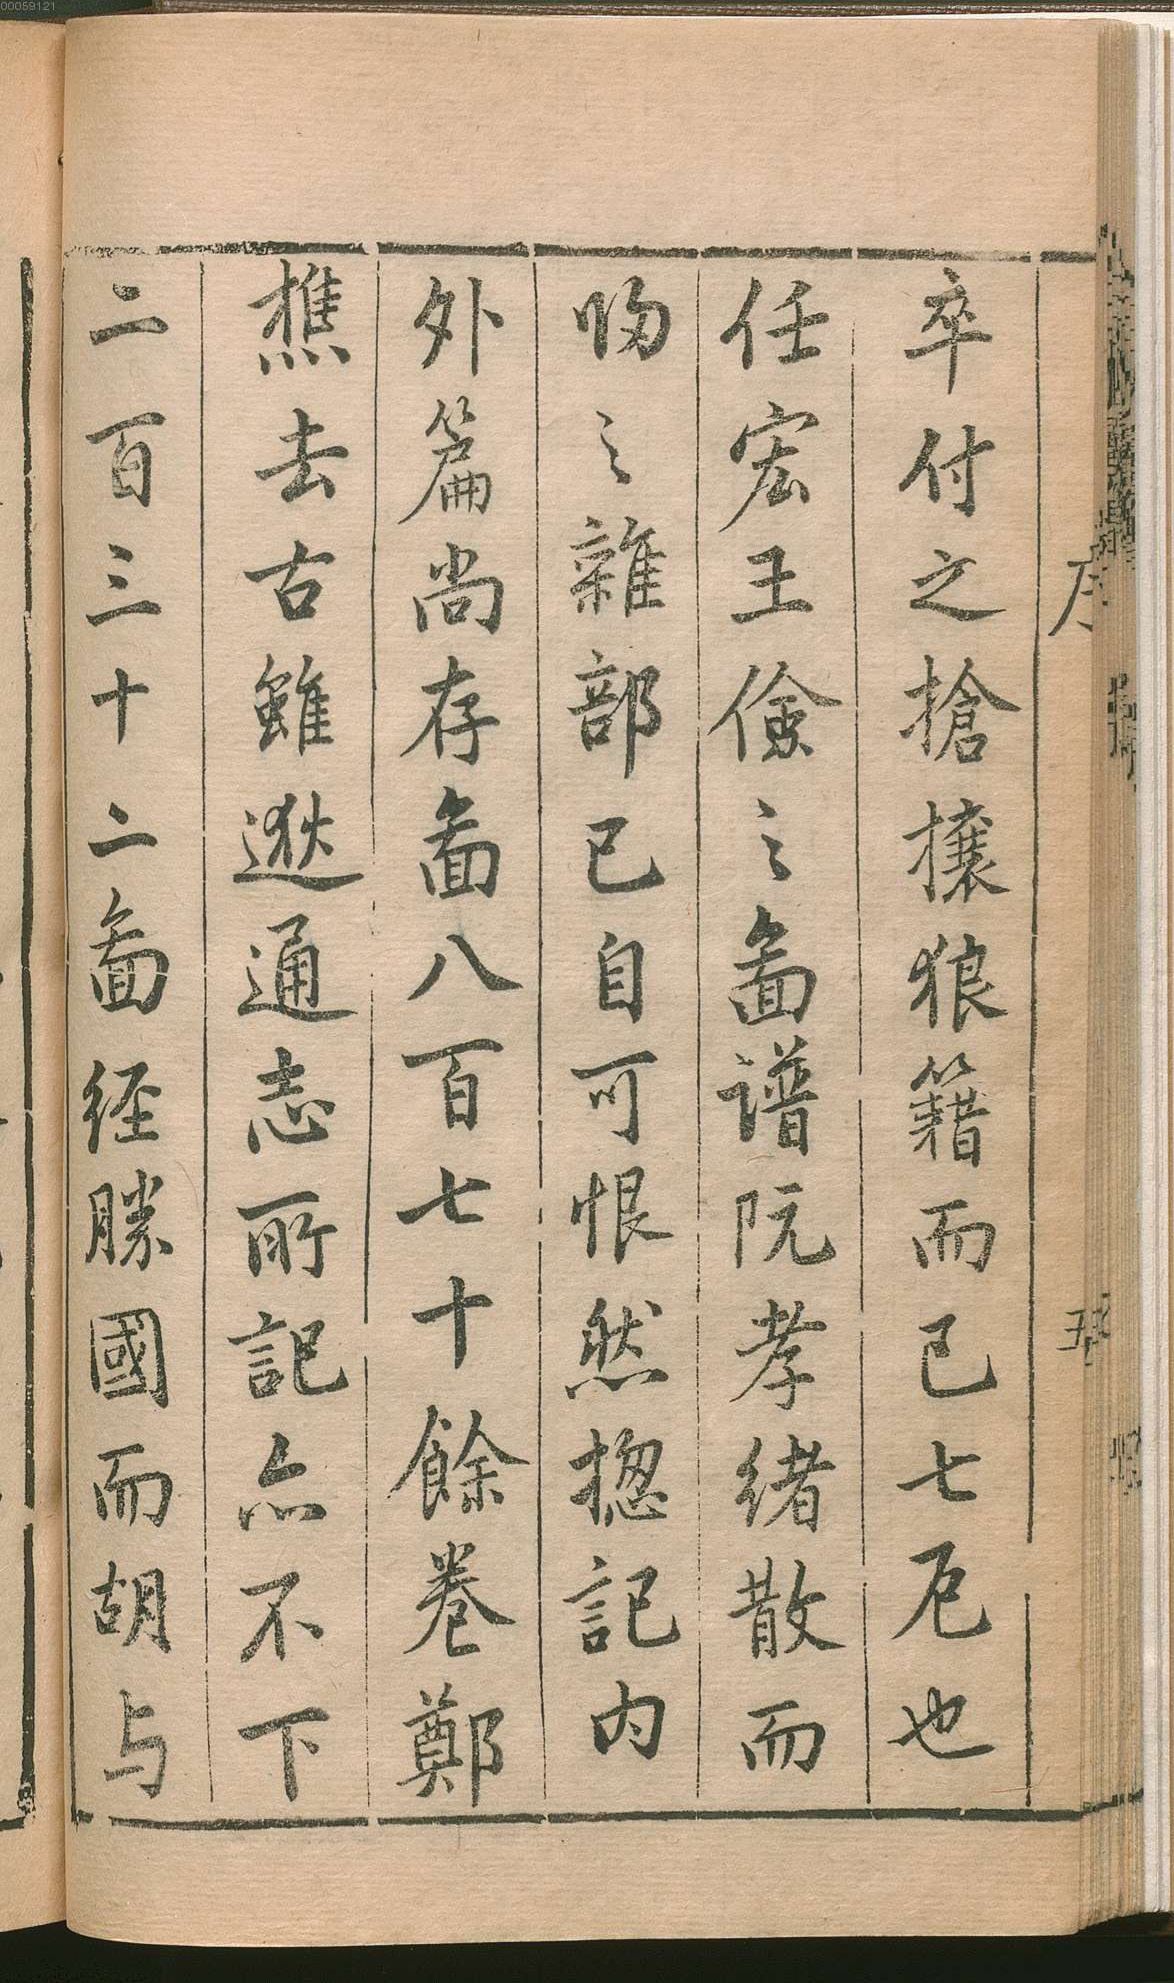 00059121
序
五
卒付之搶攘狼籍而已七厄也
任宏王儉之啚譜阮孝绪散而
㱕之雜部已自可恨然揔記内
外篇尚存啚八百七十餘卷鄭
樵去古雖逖通志所記亦不下
二百三十二啚経勝國而胡与